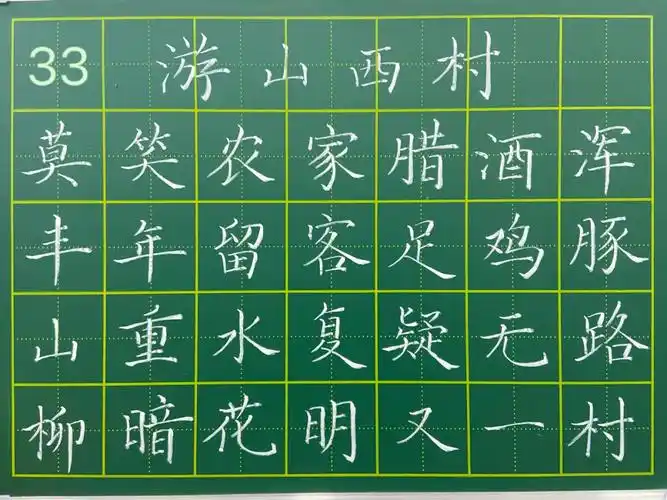 33 游山西村
莫笑农家腊酒浑
丰年留客足鸡豚
山重水复疑无路
柳暗花明又一村